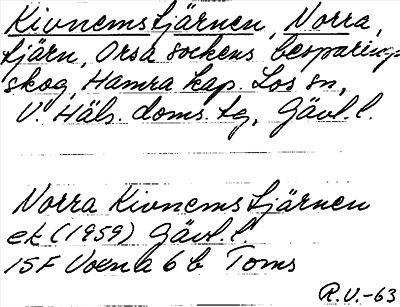 Kivnemstjärnen, Norra,
tjärn, Orsa sockens besparings
skog, Hamra kap. Los sn,
V. Häls. doms. tg, Gävl. l.
Norra Kivnemstjärnen
ek (1959) Gävl. l
15F Voxna 6 b Toms
R.V.-63